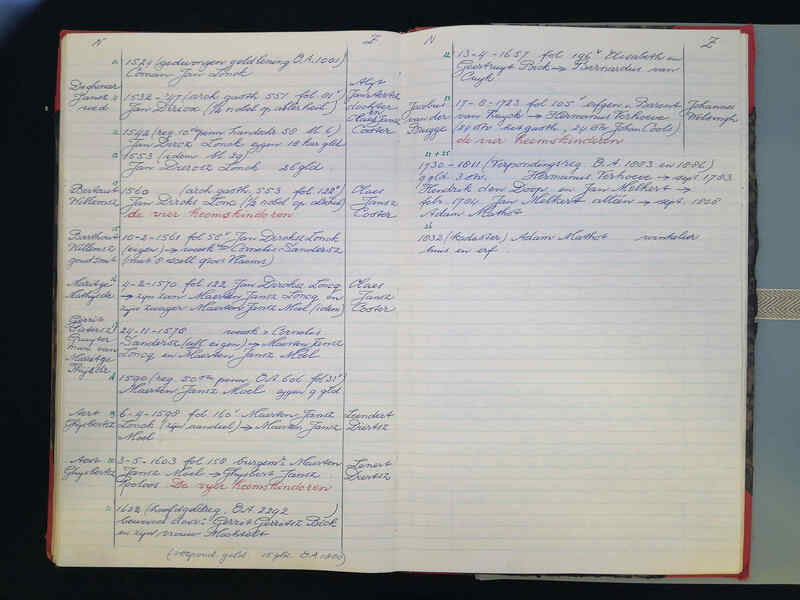 N
Z
1529 (gedwongen geldlening O.A. 1001)
Coman Jan Lonck
Dieghener
Jansz
wed
1532-'47 (arch. gasth. 551 fol. 01ᵛ)
Jan Dircxz (½ nobel op
Alyt
Jan
dochter
en
Claes Jansz
Coster
1542 (reg. 10ᵉ penn.
Jan Dircx Lonck eygen 18 kar. gld
1553 (idem bl. 29)
Jan Diercxz Lonck 26 gld.
Bertout
Willemsz
1560 (arch. gasth. 553 fol. 128ᵛ)
Jan Dircks Lonc (½ nobel op
de vier heemskinderen
Claes
Jansz
Coster
Barthout
Willemsz
goudsmit
10-2-1561 fol 58ᵛ Jan Dircksz Lonck
(eigen) → Cornelis Sandersz
(met 8 scell. groot Vlaems)
Maritge
Mathysdr
4-2-1570 fol 122 Jan Dircksz Loncq
→ zijn zoon Maerten Jansz Loncq en
zijn zwager Maerten Jansz Moel (idem)
Claes
Jansz
Coster
Gerrit
Pietersz
Gruyter
man van
Maritge
Thysdr
24-11-1578 Cornelis
Sandersz (eigen) → Maerten Jansz
Loncq en Maerten Jansz Moel
1590 (reg. 50ˢᵗᵉ penn. O.A. 606 fol 31ᵛ)
Maerten Jansz Moel eygen 9 gld
Aert
Ghysbertsz
6-4-1598 fol 160ᵛ Maerten Jansz
Lonck (zijn aandeel) → Maerten Jansz
Moel
Leendert
Diertsz
Aert
Ghysbertsz
3-5-1603 fol 158 burgemr. Maerten
Jansz Moel → Ghysbert Jansz
Spoloos. De vyer heemskinderen
Lenert
Diertsz
1622 (hoofdgeldreg. O.A. 2242 )
bewoond door: Gerrit Gerritsz Bick
en zijn vrouw
(verpond. geld 15 gld. O.A. 1800)
N
Z
13-4-1657 fol 196ᵛ Elisabeth en
Geertruyt Bick → Bernardus van
Cuyk
Jacobus
van der
Brugge
17-8-1723 fol 105 erfgen. v. Barent
van Kuyck → Hermanus Verhoeve
(24 gasth., 24 Johan Cools)
de vier heemskinderen
Johannes
24 + 25
1730-1811 (Verpondingsreg. O.A. 1883 en 1886)
9 gld. 3 stv. Hermanus Verhoeve → sept. 1783
Hendrik den Doop en Jan Melkert →
febr. 1784 Jan Melkert alleen → sept. 1808
Adam Mathot
26
1832 (kadaster) Adam Mathot winkelier
huis en erf.